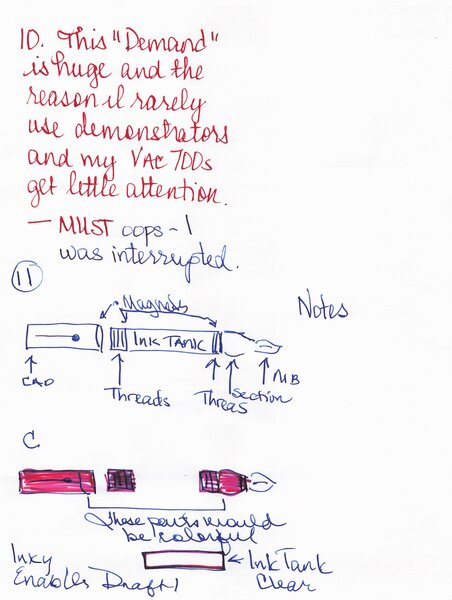 10. This "Demand"
is huge and the
reason I rarely
use demonstrators
and my VAC 700s
get little attention.
— MUST oops - I
was interrupted.
11
Magnets
Notes
INK TANK
CAP
Threads
Threas
Section
NIB
C
These parts would
be colorful
Inky
Enables Draft 1
Ink Tank
Clear